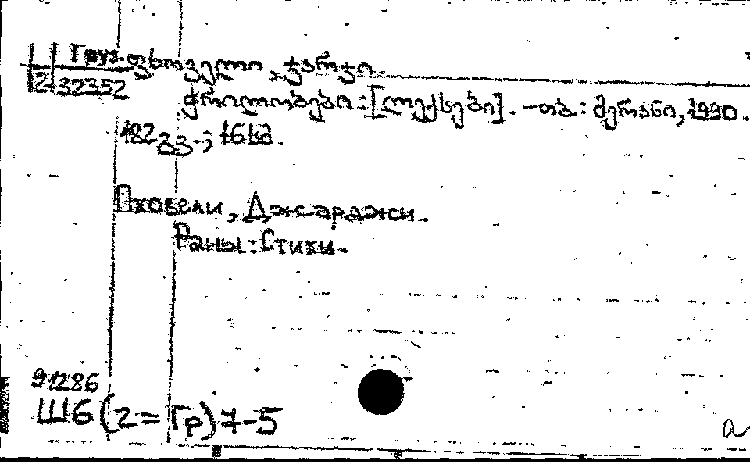 Груз. ფხოველი, ჯარჯი.
2-32352
ჭრილობები: [ლექსები]. - თბ.: მერანი, 1990.
182 გვ.; 16სმ.
Пховели, Джарджи.
Раны: Стихи.
91286
Ш6(2=Гр)7-5